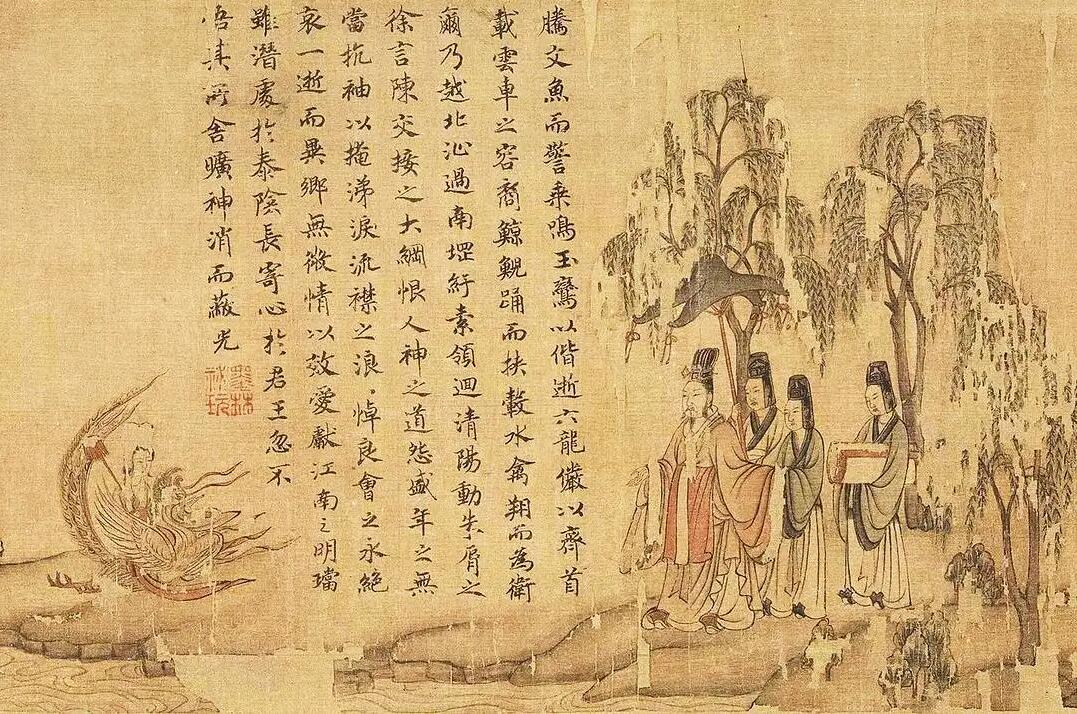 騰文魚而警乘鳴玉鸞以偕逝六龍儼以齊首
載雲車之容裔鯨鯢踊而挾轂水禽翔而為衛
爾乃越北沚過南堽紆素領迴清陽動朱脣之
徐言陳交接之大綱恨人神之道怨盛年之無
當抗袖以掩涕淚流襟之浪〻悼良會之永絕
哀一逝而異鄉無微情以效愛獻江南之明璫
雖潛處於泰陰長寄心於君王忽不
悟其所舍曠神消而蔽光
墨林祕玩